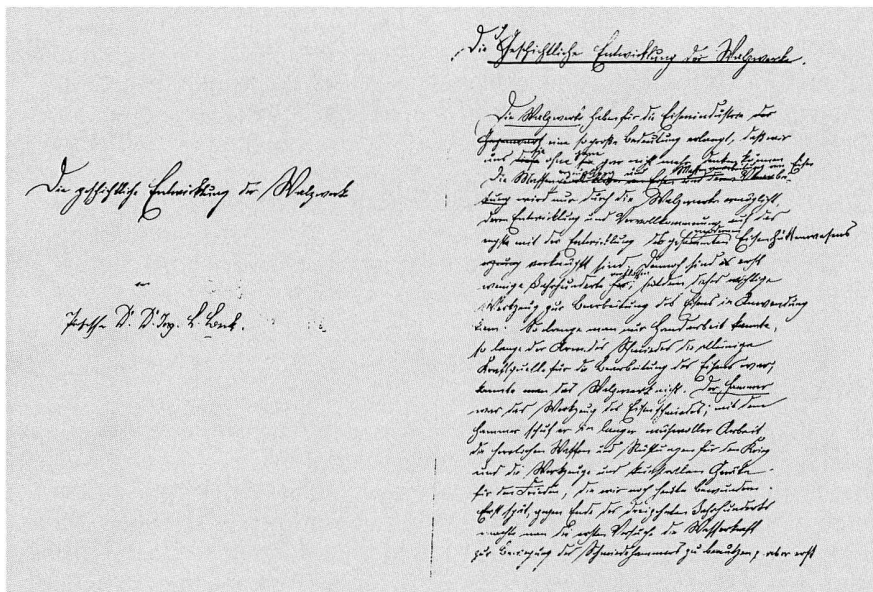 Die geschichtliche Entwicklung der Walzwerke
von
Professor Dr. Dr. Ing. L. Beck.
Die Geschichtliche Entwicklung der Walzwerke.
Die Walzwerke haben für die Eisenindustrie der
Gegenwart eine so große Bedeutung erlangt, daß wir
uns diese ohne sie gar nicht mehr denken können
Die Massen und Eisen
wird nur durch die Walzwerke ermöglicht,
deren Entwicklung und Vervollkommnung auf das
engste mit der Entwicklung des gesammten modernen Eisenhüttenwesens
verknüpft sind. Dennoch sind es erst
wenige Jahrhunderte her, seitdem dieses wichtige
Werkzeug zur Bearbeitung des Eisens in Anwendung
kam. So lange man nur Handarbeit kannte,
so lange der Arm des Schmiedes die alleinige
Kraftquelle für die Bearbeitung des Eisens war,
kannte man das Walzwerk nicht. Der Hammer
war das Werkzeug des Eisenschmiedes; mit dem
Hammer schuf er in langer mühevoller Arbeit
die herrlichen Waffen und Rüstungen für den Krieg
und die Werkzeuge und kunstvollen Geräte
für den Frieden, die wir noch heute bewundern.
Erst spät, gegen Ende des dreizehnten Jahrhunderts
machte man die ersten Versuche die Wasserkraft
zur Bewegung des Schmiedehammers zu benutzen, aber erst